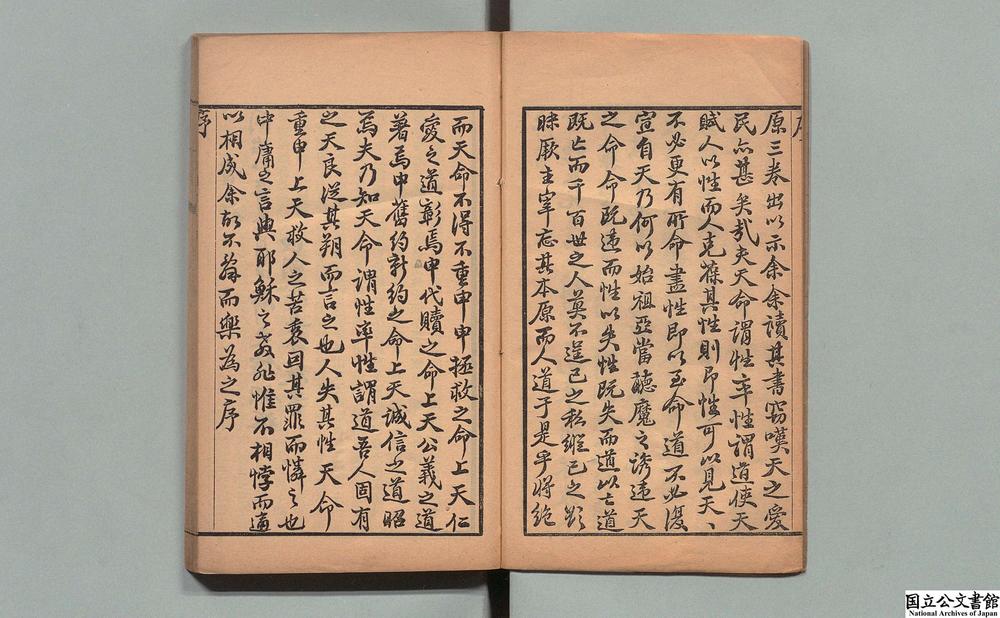 原三卷出以示余余讀其書竊嘆天之愛
民亦甚矣哉夫天命謂性率性謂道使天
賦人以性而人克葆其性則即性可以見天、
不必更有所命盡性即以至命道不必復
宣自天乃何以始祖亞當聽魔之誘違天
之命命既違而性以失性既失而道以亡道
既亡而千百世之人莫不逞己之私縱己之欲
昧厥主宰忘其本原而人道于是乎將絕
而天命不得不重申申拯救之命上天仁
愛之道彰焉申代贖之命上天公義之道
著焉申舊約新約之命上天誠信之道昭
焉夫乃知天命謂性率性謂道吾人固有
之天良從其朔而言之也人失其性天命
重申上天救人之苦衷回其罪而憐之也
中庸之言與耶穌之教非惟不相悖而適
以相成余故不辭而樂為之序
序
国立公文書館
National Archives of Japan